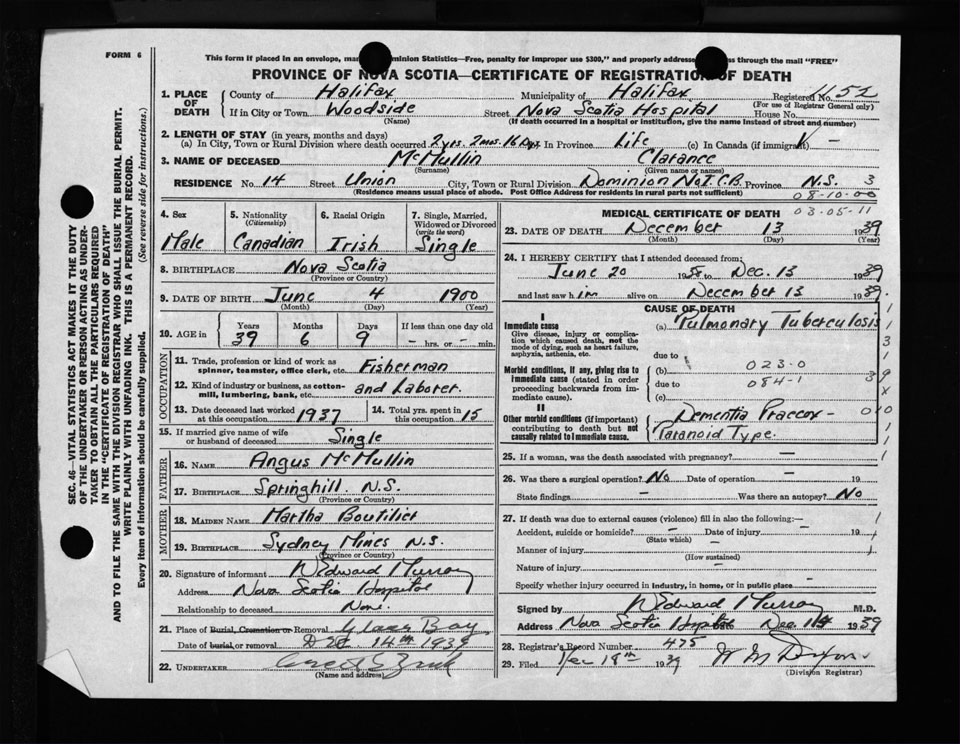 FORM 6
This form if posted in an envelope, ma minion Statistics—Free, penalty for improper use $300," and properly addresse ss through the mail "FREE"
PROVINCE OF NOVA SCOTIA—CERTIFICATE OF REGISTRATION OF DEATH
1. PLACE OF DEATH County of Halifax Municipality of Halifax Registered No. 1652
(For use of Registrar General only)
If in City or Town Woodside Street Nova Scotia Hospital House No.
(Name) (If death occurred in a hospital or institution, give the name instead of street and number)
2. LENGTH OF STAY (in years, months and days)
(a) In City, Town or Rural Division where death occurred 2 yrs. 2 mos. 16 Dys In Province Life (c) In Canada (if immigrant) —
3. NAME OF DECEASED McMullin Clarance
(Surname) (Given name or names)
RESIDENCE No. 14 Street Union City, Town or Rural Division Dominion No 1. C.B. Province N.S. 3
(Residence means usual place of abode. Post Office Address for residents in rural parts not sufficient) 08-10-00
03-05-11
4. Sex Male
5. Nationality (Citizenship) Canadian
6. Racial Origin Irish
7. Single, Married, Widowed or Divorced (write the word) Single
8. BIRTHPLACE Nova Scotia
(Province or Country)
9. DATE OF BIRTH June 4 1900
(Month) (Day) (Year)
10. AGE in Years 39 Months 6 Days 9 If less than one day old — hrs. or — min.
OCCUPATION
11. Trade, profession or kind of work as spinner, teamster, office clerk, etc. Fisherman
12. Kind of industry or business, as cotton-mill, lumbering, bank, etc. and Laborer.
13. Date deceased last worked at this occupation 1937 14. Total yrs. spent in this occupation 15
15. If married give name of wife or husband of deceased Single
FATHER
16. NAME Angus McMullin
17. BIRTHPLACE Springhill N.S.
(Province or Country)
MOTHER
18. MAIDEN NAME Martha Boutilier
19. BIRTHPLACE Sydney Mines N.S.
(Province or Country)
20. Signature of informant Edward Murray
Address Nova Scotia Hospital
Relationship to deceased None.
21. Place of Burial, Cremation or Removal Glace Bay
Date of burial, or removal Dec 14th 1939
22. UNDERTAKER
(Name and address)
MEDICAL CERTIFICATE OF DEATH
23. DATE OF DEATH December 13 1939
(Month) (Day) (Year)
24. I HEREBY CERTIFY that I attended deceased from;
June 20 1938 to Dec. 13 1939
and last saw him alive on December 13 1939.
CAUSE OF DEATH
I
Immediate cause
Give disease, injury or complication which caused death, not the mode of dying, such as heart failure, asphyxia, asthenia, etc.
(a) Pulmonary Tuberculosis
due to
Morbid conditions, if any, giving rise to immediate cause (stated in order proceeding backwards from immediate cause).
(b) 023-0
due to 084-1
(c)
II
Other morbid conditions (if important) contributing to death but not causally related to immediate cause.
Dementia Praecox —
Paranoid Type.
25. If a woman, was the death associated with pregnancy? —
26. Was there a surgical operation? No Date of operation —
State findings — Was there an autopsy? No
27. If death was due to external causes (violence) fill in also the following:—
Accident, suicide or homicide? — Date of injury — 19
(State which)
Manner of injury —
(How sustained)
Nature of injury —
Specify whether injury occurred in industry, in home, or in public place —
Signed by Edward Murray M.D.
Address Nova Scotia Hospital Date Dec. 14 1939
28. Registrar's Record Number 475
29. Filed Dec 19th 1939 W M Dixon
(Division Registrar)
SEC. 46—VITAL STATISTICS ACT MAKES IT THE DUTY
OF THE UNDERTAKER OR PERSON ACTING AS UNDER-
TAKER TO OBTAIN ALL THE PARTICULARS REQUIRED
IN THE "CERTIFICATE OF REGISTRATION OF DEATH"
AND TO FILE THE SAME WITH THE DIVISION REGISTRAR WHO SHALL ISSUE THE BURIAL PERMIT.
WRITE PLAINLY WITH UNFADING INK. THIS IS A PERMANENT RECORD.
Every item of information should be carefully supplied. (See reverse side for instructions.)